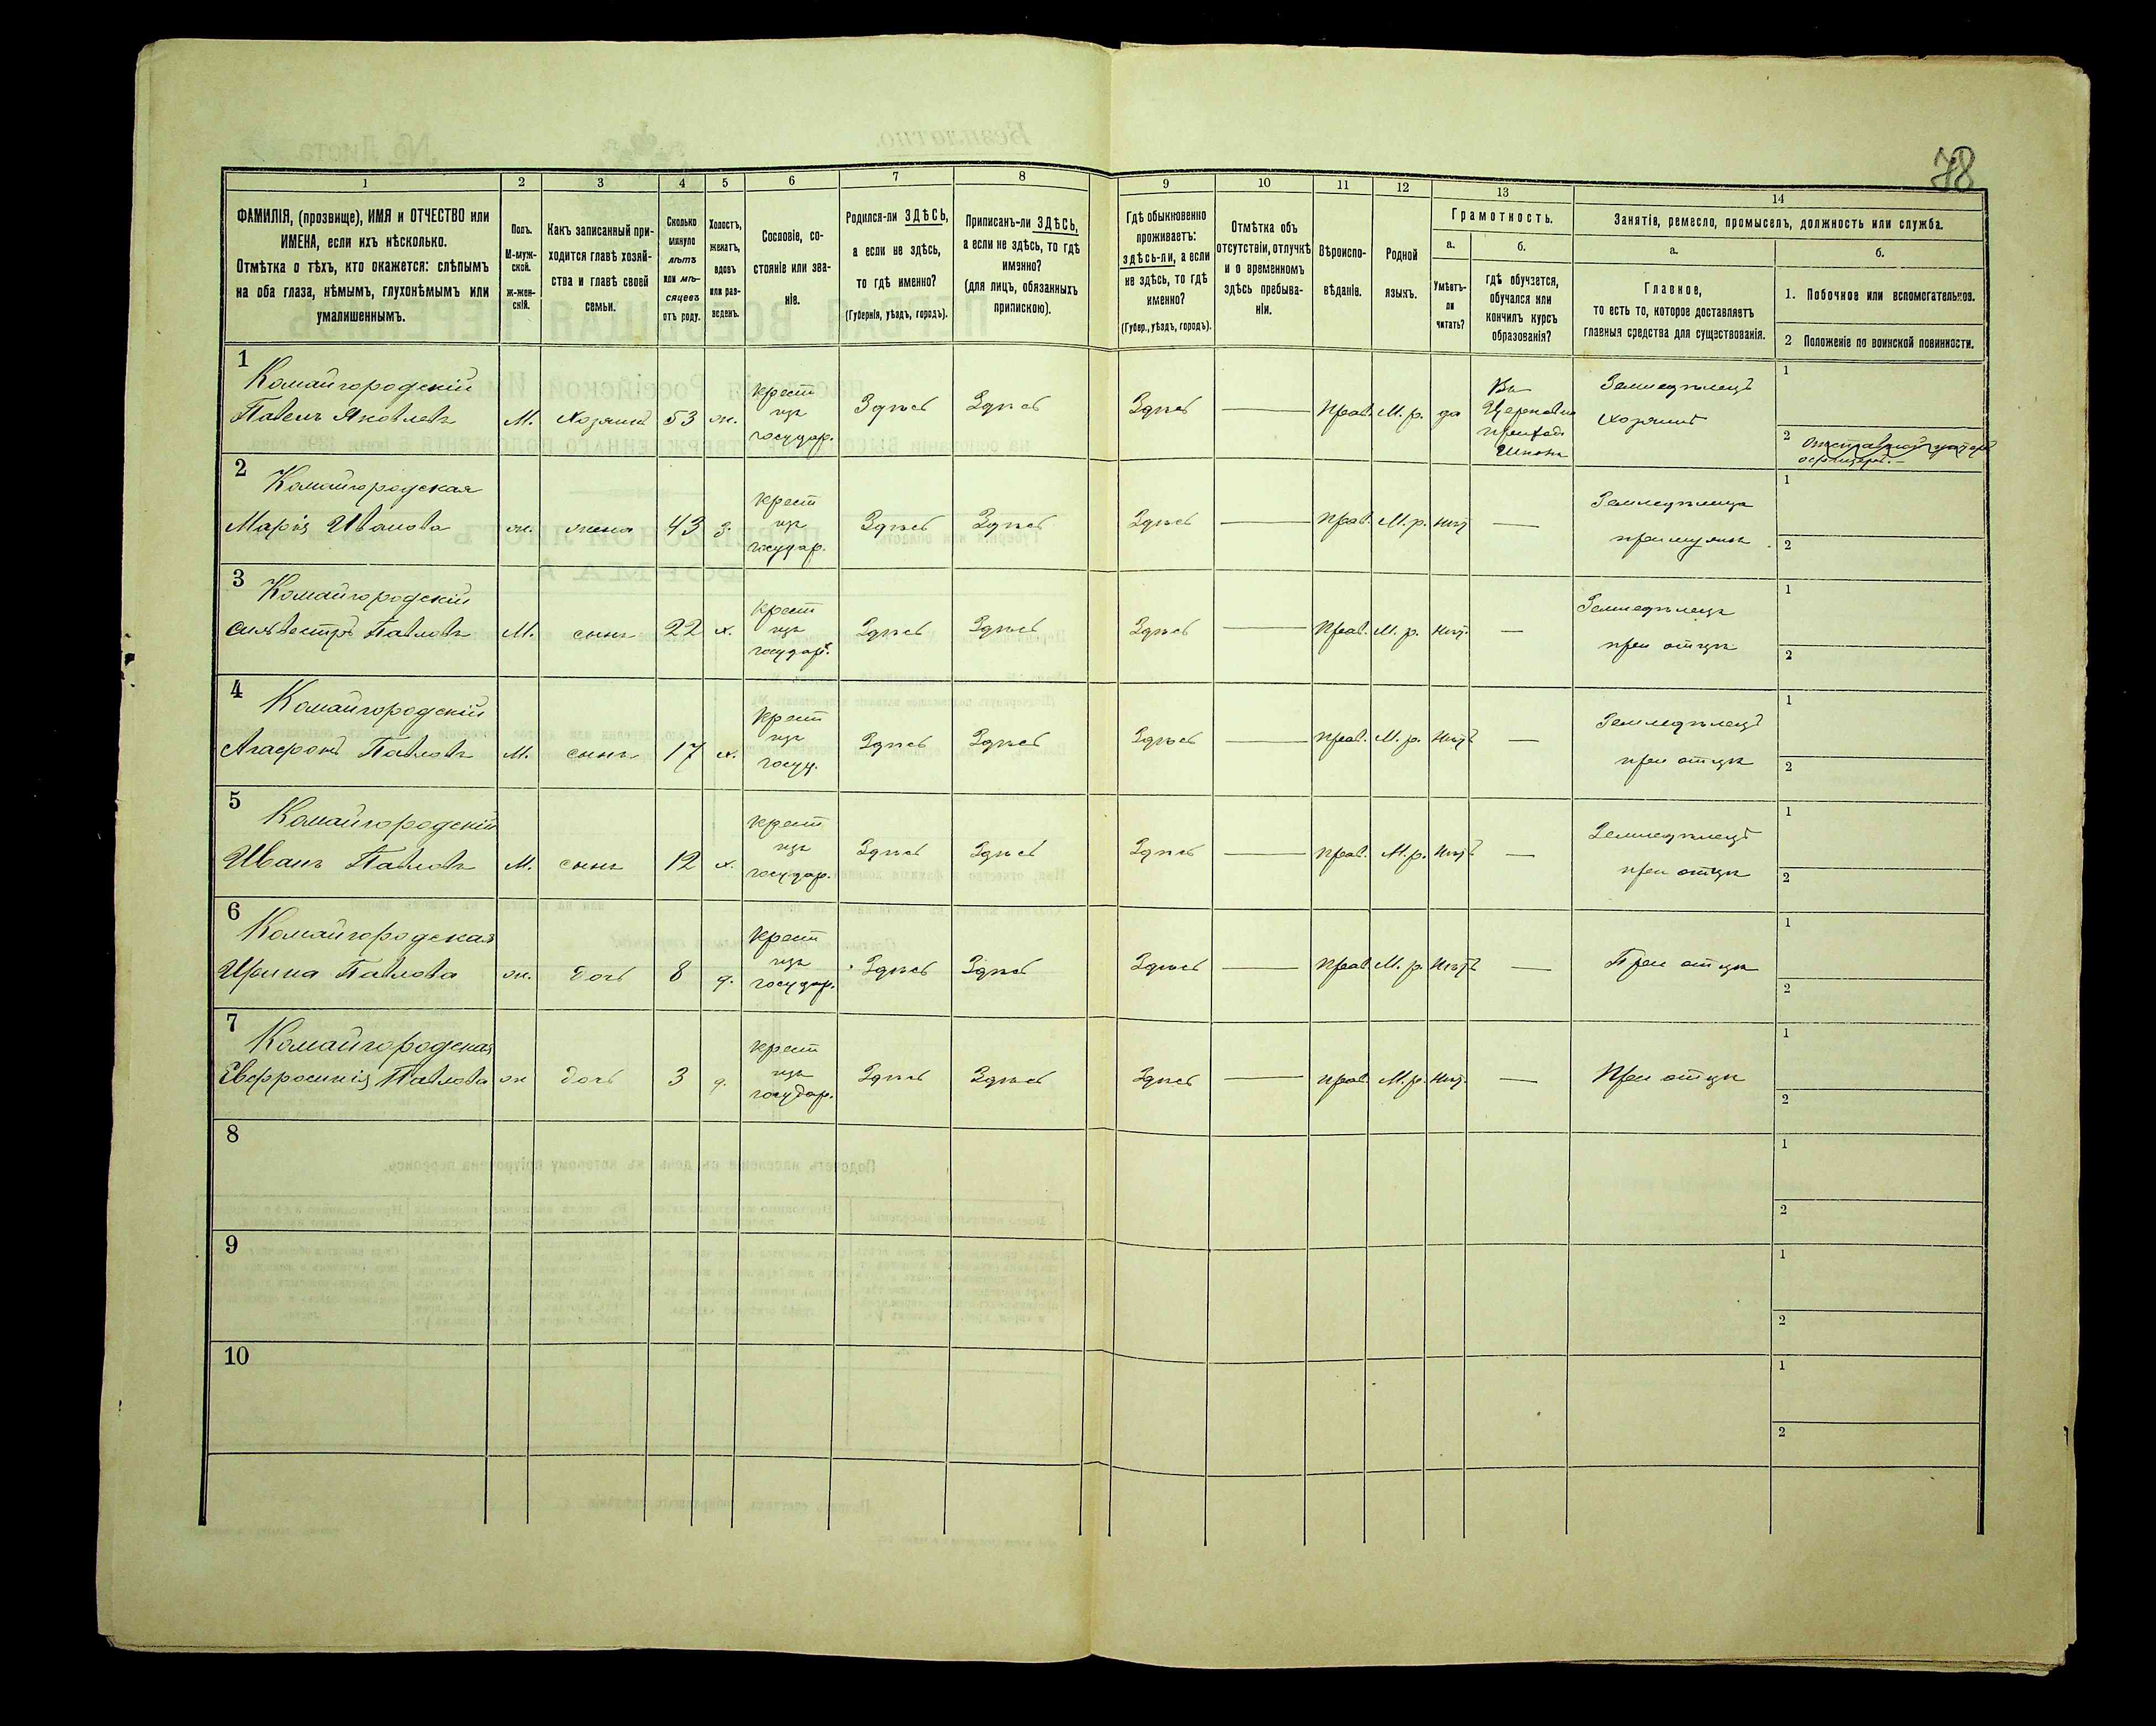 78
1 2 3 4 5 6 7 8 9 10 11 12 13 14
ФАМИЛІЯ, (прозвище), ИМЯ и ОТЧЕСТВО или
ИМЕНА, если ихъ нѣсколько.
Отмѣтка о тѣхъ, кто окажется: слѣпымъ
на оба глаза, нѣмымъ, глухонѣмымъ или
умалишеннымъ.
Полъ.
М-муж-
ской.
Ж-жен-
скій.
Какъ записанный при-
ходится главѣ хозяй-
ства и главѣ своей
семьи.
Сколько
минуло
лѣтъ
или мѣ-
сяцевъ
отъ роду.
Холостъ,
женатъ,
вдовъ
или раз-
веденъ.
Сословіе, со-
стояніе или зва-
ніе.
Родился-ли ЗДѢСЬ,
а если не здѣсь,
то гдѣ именно?
(Губернія, уѣздъ, городъ).
Приписанъ-ли ЗДѢСЬ,
а если не здѣсь, то гдѣ
именно?
(для лицъ, обязанныхъ
припискою).
Гдѣ обыкновенно
проживаетъ:
здѣсь-ли, а если
не здѣсь, то гдѣ
именно?
(Губер., уѣздъ, городъ).
Отмѣтка объ
отсутствіи, отлучкѣ
и о временномъ
здѣсь пребыва-
ніи.
Вѣроиспо-
вѣданіе.
Родной
языкъ.
Грамотность.
а.
Умѣетъ-
ли
читать?
б.
гдѣ обучается,
обучался или
кончилъ курсъ
образованія?
Занятія, ремесло, промыселъ, должность или служба.
а.
Главное,
то есть то, которое доставляетъ
главныя средства для существованія.
б.
1. Побочное или вспомогательное.
2 Положеніе по воинской повинности.
1
Комайгородскій
Павелъ Яковлевъ М. Хозяинъ 53 ж.
крест
изъ
государ.
Здѣсь Здѣсь Здѣсь — прав. М. р. да
Въ
Церковно
приход
Школѣ
Земледѣлецъ
хозяинъ
1
2 Отставной унтеръ
офицеръ.-
2
Комайгородская
Марія Иванова ж. жена 43 з.
крест
изъ
государ.
Здѣсь Здѣсь Здѣсь — прав. М. р. нѣтъ —
Земледѣлица
при мужѣ
1
2
3
Комайгородскій
Сильвестръ Павловъ М. сынъ 22 х.
крест
изъ
государ.
Здѣсь Здѣсь Здѣсь — прав. М. р. нѣт. —
Земледѣлецъ
при отцѣ
1
2
4
Комайгородскій
Агафонъ Павловъ М. сынъ 17 х.
крест
изъ
госуд.
Здѣсь Здѣсь Здѣсь — прав. М. р. нѣтъ —
Земледѣлецъ
при отцѣ
1
2
5
Комайгородскій
Иванъ Павловъ М. сынъ 12 х.
крест
изъ
государ.
Здѣсь Здѣсь Здѣсь — прав. М. р. нѣтъ —
Земледѣлецъ
при отцѣ
1
2
6
Комайгородская
Ирина Павлова ж. дочь 8 д.
крест
изъ
государ.
Здѣсь Здѣсь Здѣсь — прав. М. р. нѣтъ —
При отцѣ
1
2
7
Комайгородская
Евфросинія Павлова ж дочь 3 д.
крест
изъ
государ.
Здѣсь Здѣсь Здѣсь — прав. М. р. нѣт. —
При отцѣ
1
2
8
1
2
9
1
2
10
1
2